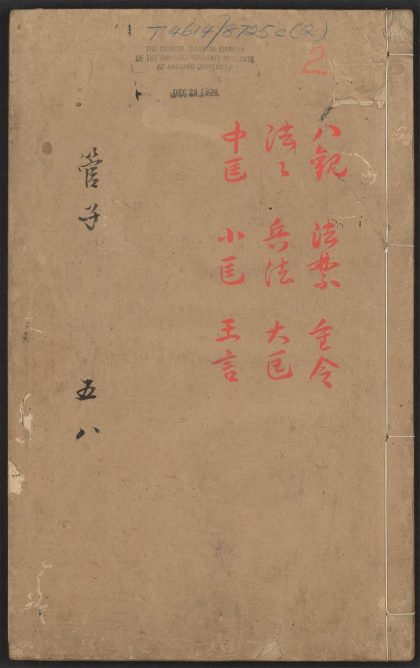 T4614/8725c(2)
THE CHINESE-JAPANESE LIBRARY
OF THE HARVARD-YENCHING INSTITUTE
AT HARVARD UNIVERSITY
DEC 28
2
八觀 法禁 重令
法〻 兵法 大匡
中匡 小匡 王言
管子 五八